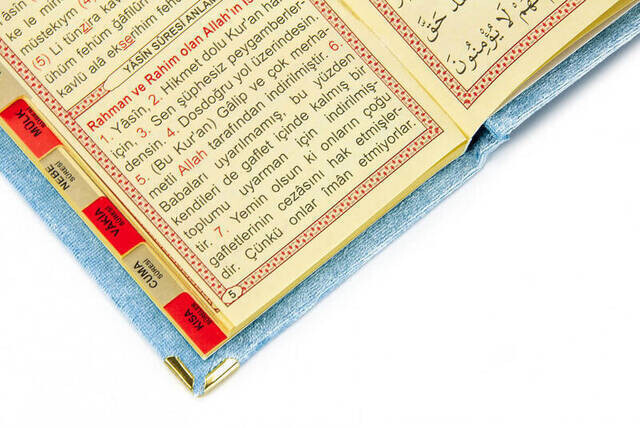 müstekıym
(5) Li tünzira kavmen
ühüm fehüm gâfilûn
kavlü alâ ekserihim fehüm
YÂSİN SÛRESİ ANLAMI
Rahman ve Rahim olan Allah'ın is
1. Yâsin, 2. Hikmet dolu Kur'an ha
için, 3. Sen şüphesiz peygamberler-
densin. 4. Dosdoğru yol üzerindesin.
5. (Bu Kur'an) Gâlip ve çok merha-
metli Allah tarafından indirilmiştir. 6.
Babaları uyarılmamış, bu yüzden
kendileri de gaflet içinde kalmış bir
toplumu uyarman için indirilmiş-
tir. 7. Yemin olsun ki onların çoğu
gafletlerinin cezâsını hak etmişler-
dir. Çünkü onlar îmân etmiyorlar.
5
حَقَّ
هُمْ لَا يُؤْمِنُونَ
MÜLK
SÛRESİ
NEBE
SÛRESİ
VÂKIA
SÛRESİ
CUMA
SÛRESİ
KISA
SÛRELER